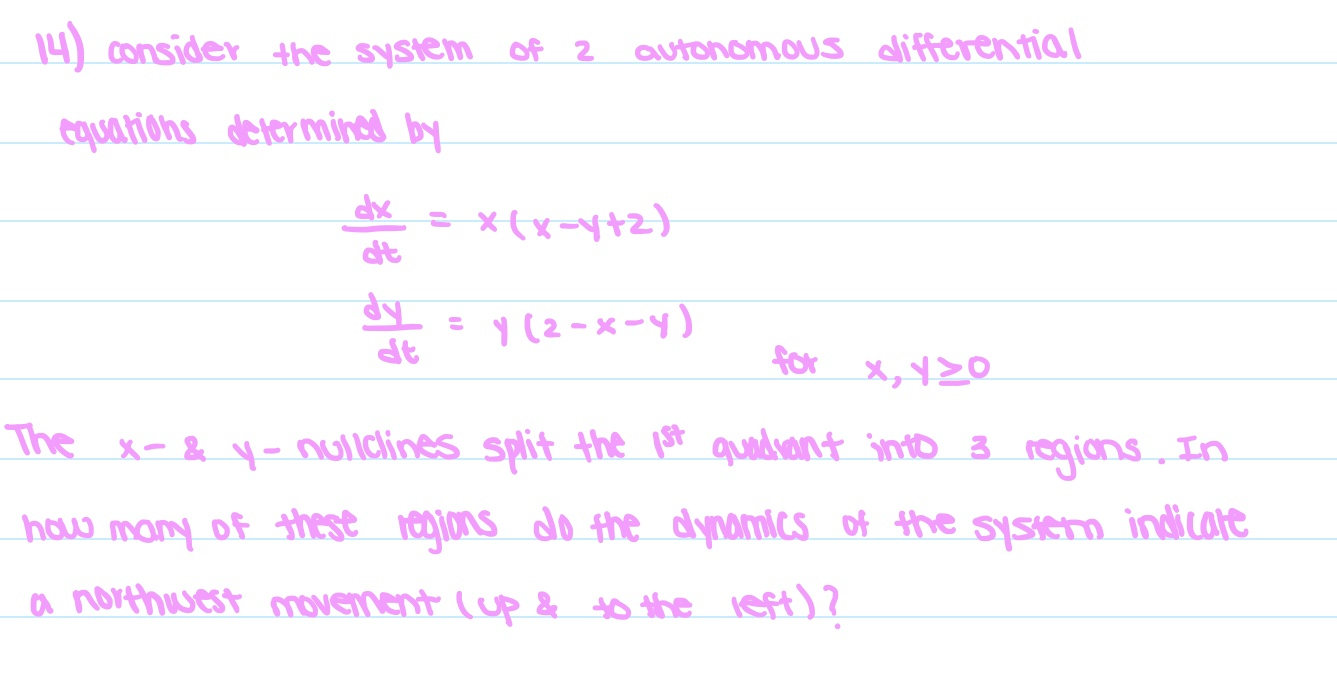 14) consider the system of 2 autonomous differential
equations determined by
dx/dt = x(x-y+2)
dy/dt = y(2-x-y)
for x, y≥0
The x- & y- nullclines split the 1st quadrant into 3 regions. In
how many of these regions do the dynamics of the system indicate
a northwest movement (up & to the left)?